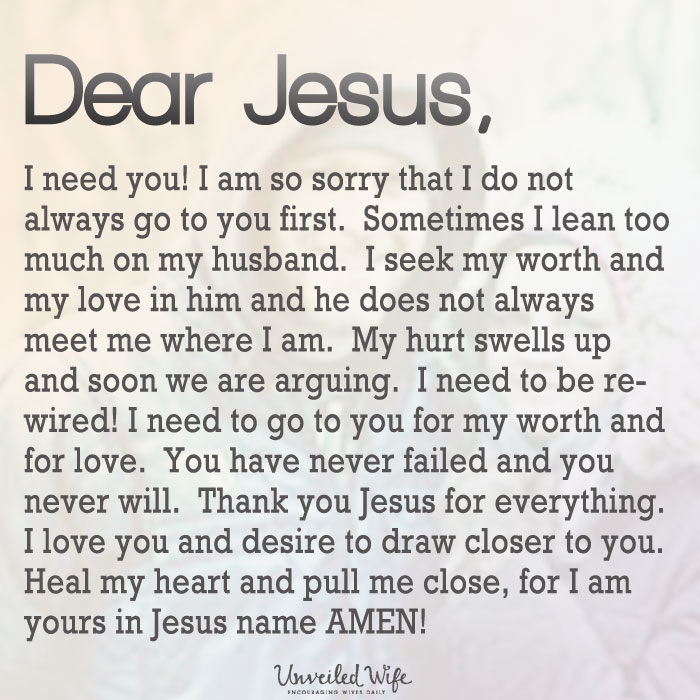 Dear Jesus,
I need you! I am so sorry that I do not
always go to you first.  Sometimes I lean too
much on my husband.  I seek my worth and
my love in him and he does not always
meet me where I am.  My hurt swells up
and soon we are arguing.  I need to be re-
wired! I need to go to you for my worth and
for love.  You have never failed and you
never will.  Thank you Jesus for everything.
I love you and desire to draw closer to you.
Heal my heart and pull me close, for I am
yours in Jesus name AMEN!
Unveiled Wife
ENCOURAGING WIVES DAILY